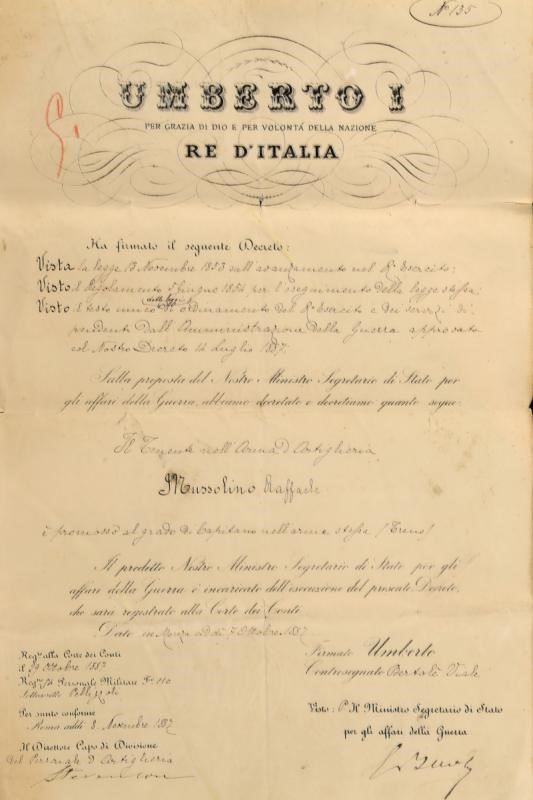 Nº 135
UMBERTO I
PER GRAZIA DI DIO E PER VOLONTÀ DELLA NAZIONE
RE D'ITALIA
Ha firmato il seguente Decreto:
Vista la legge 13 Novembre 1853 sull'avanzamento nel R. Esercito;
Visto il Regolamento Giugno 1854 per l'eseguimento della legge stessa;
Visto il testo unico delle leggi di ordinamento del R. Esercito e dei servizi di-
pendenti dall'Amministrazione della Guerra approvato
col Nostro Decreto 14 Luglio 1887.
Sulla proposta del Nostro Ministro Segretario di Stato per
gli affari della Guerra, abbiamo decretato e decretiamo quanto segue:
Il Tenente nell'Arma d'Artiglieria
Mussolino Raffaele
è promosso al grado di Capitano nell'arma stessa (Treno)
Il predetto Nostro Ministro Segretario di Stato per gli
affari della Guerra è incaricato dell'esecuzione del presente Decreto,
che sarà registrato alla Corte dei Conti.
Dato in Monza addì 7 Ottobre 1887
Regto alla Corte dei Conti
il 29 Ottobre 1887
Personale Militare
Per sunto conforme
Roma addì 8 Novembre 1887
Il Direttore Capo di Divisione
del Personale d'Artiglieria
Firmato Umberto
Controsegnato Bertolè Viale
Visto: P. Il Ministro Segretario di Stato
per gli affari della Guerra